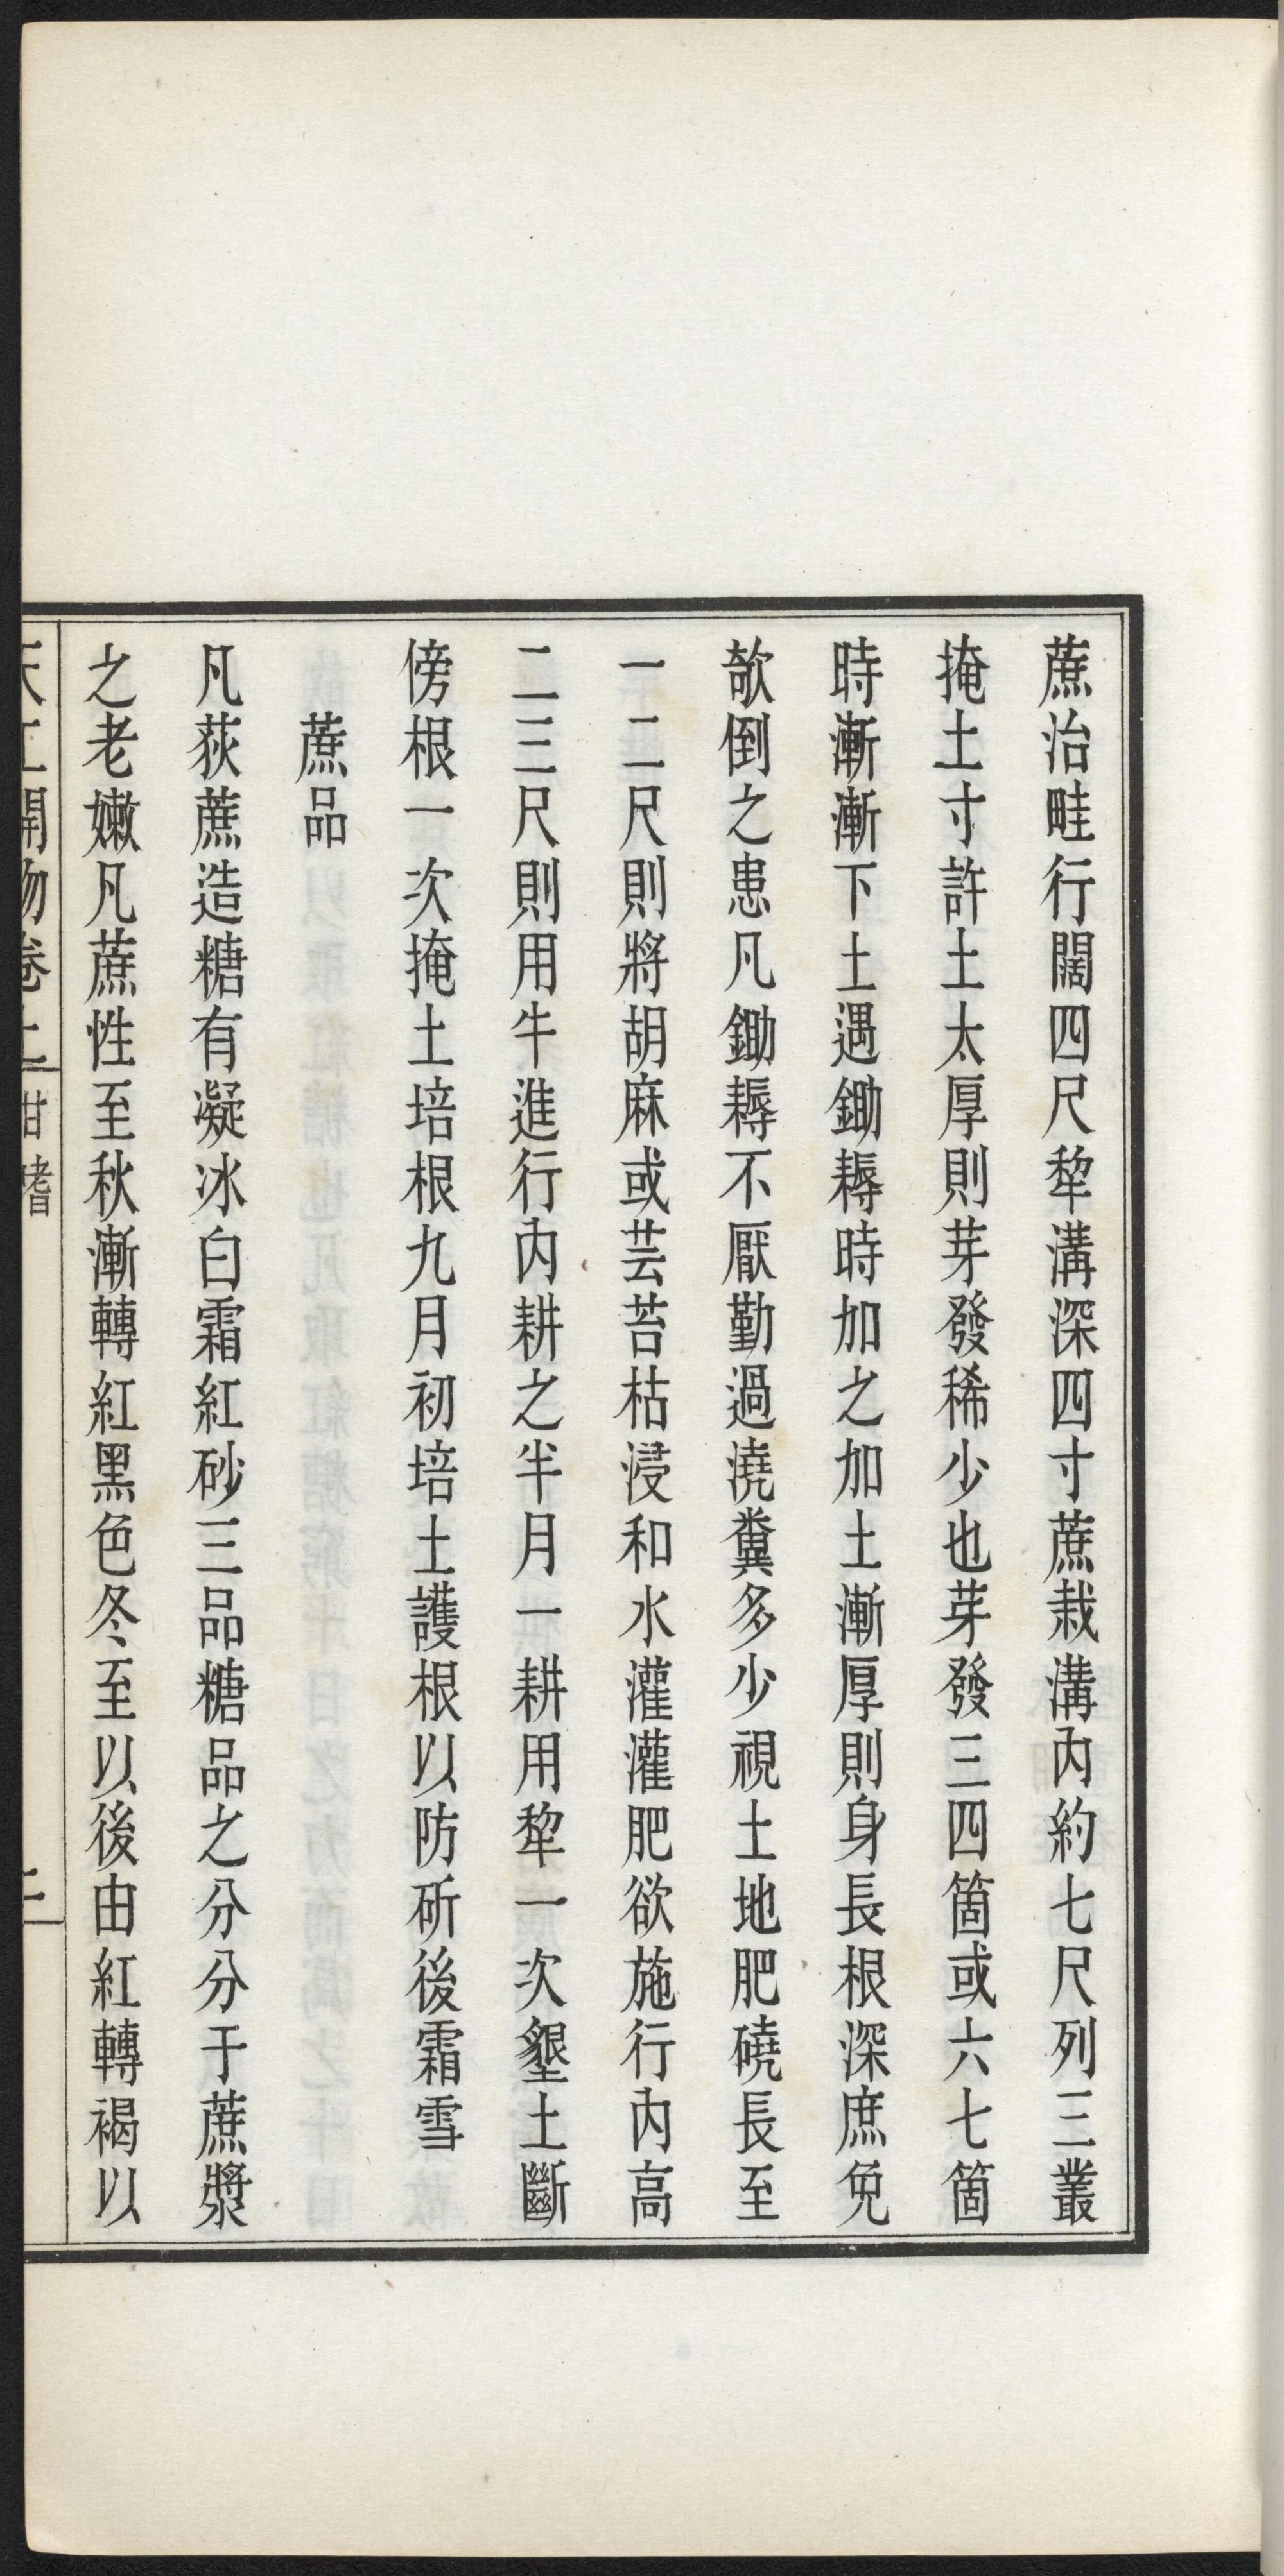 蔗治畦行闊四尺犂溝深四寸蔗栽溝內約七尺列三叢
掩土寸許土太厚則芽發稀少也芽發三四箇或六七箇
時漸漸下土遇鋤耨時加之加土漸厚則身長根深庶免
欹倒之患凡鋤耨不厭勤過澆糞多少視土地肥磽長至
一二尺則將胡麻或芸苔枯浸和水灌灌肥欲施行內高
二三尺則用牛進行內耕之半月一耕用犂一次墾土斷
傍根一次掩土培根九月初培土護根以防斫後霜雪
蔗品
凡荻蔗造糖有凝冰白霜紅砂三品糖品之分分于蔗漿
之老嫩凡蔗性至秋漸轉紅黑色冬至以後由紅轉褐以
天工開物卷上 甘嗜